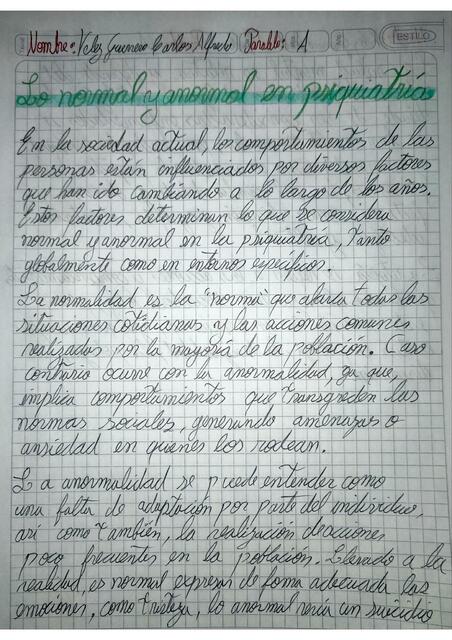 Nombre: Velez Guerrero Carlos Alfredo Paralelo: A
ESTILO
Lo normal y anormal en psiquiatría
En la sociedad actual, los comportamientos de las
personas están influenciados por diversos factores
que han ido cambiando a lo largo de los años.
Estos factores determinan lo que se considera
normal y anormal en la psiquiatría, tanto
globalmente como en entornos específicos.
La normalidad es la "norma" que abarca todas las
situaciones cotidianas y las acciones comunes
realizadas por la mayoría de la población. Caso
contrario ocurre con la anormalidad, ya que,
implica comportamientos que transgreden las
normas sociales, generando amenazas o
ansiedad en quienes los rodean.
La anormalidad se puede entender como
una falta de adaptación por parte del individuo,
así como también, la realización de acciones
poco frecuentes en la población. Llevado a la
realidad, es normal expresar de forma adecuada las
emociones, como tristeza, lo anormal sería un suicidio